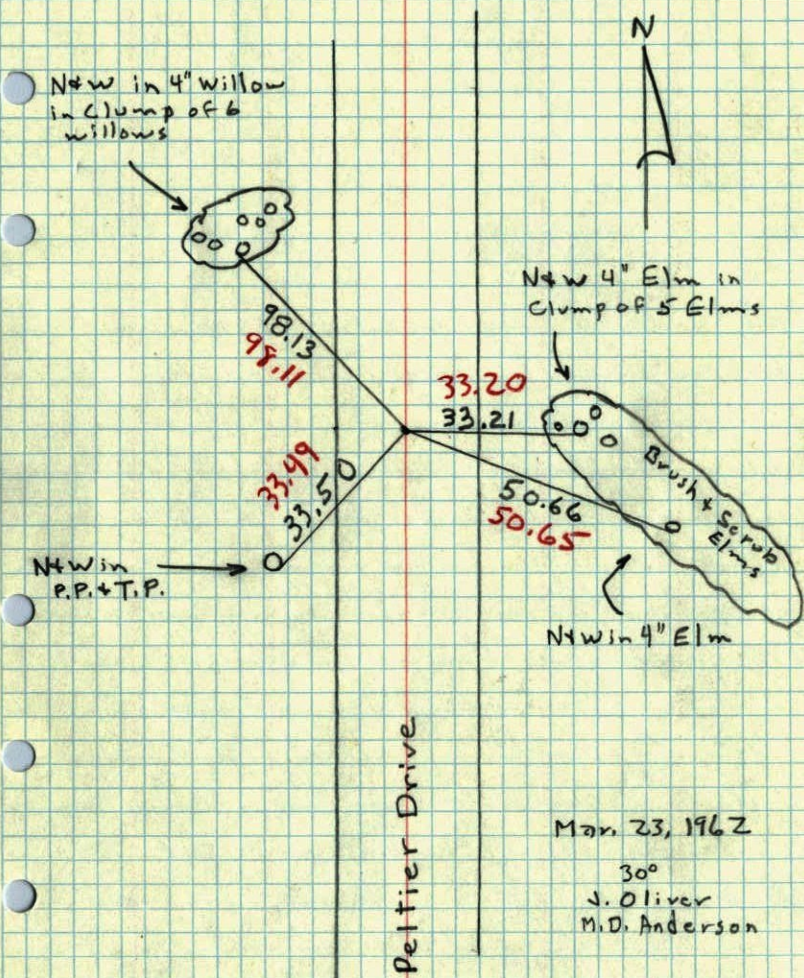 N
N&W in 4" Willow
in Clump of 6
willows
N&W 4" Elm in
Clump of 5 Elms
98.13
98.11
33.20
33.21
33.49
33.50
50.66
50.65
Brush & Scrub
Elms
N&W in
P.P. & T.P.
N&W in 4" Elm
Peltier Drive
Mar. 23, 1962
30°
J. Oliver
M.D. Anderson